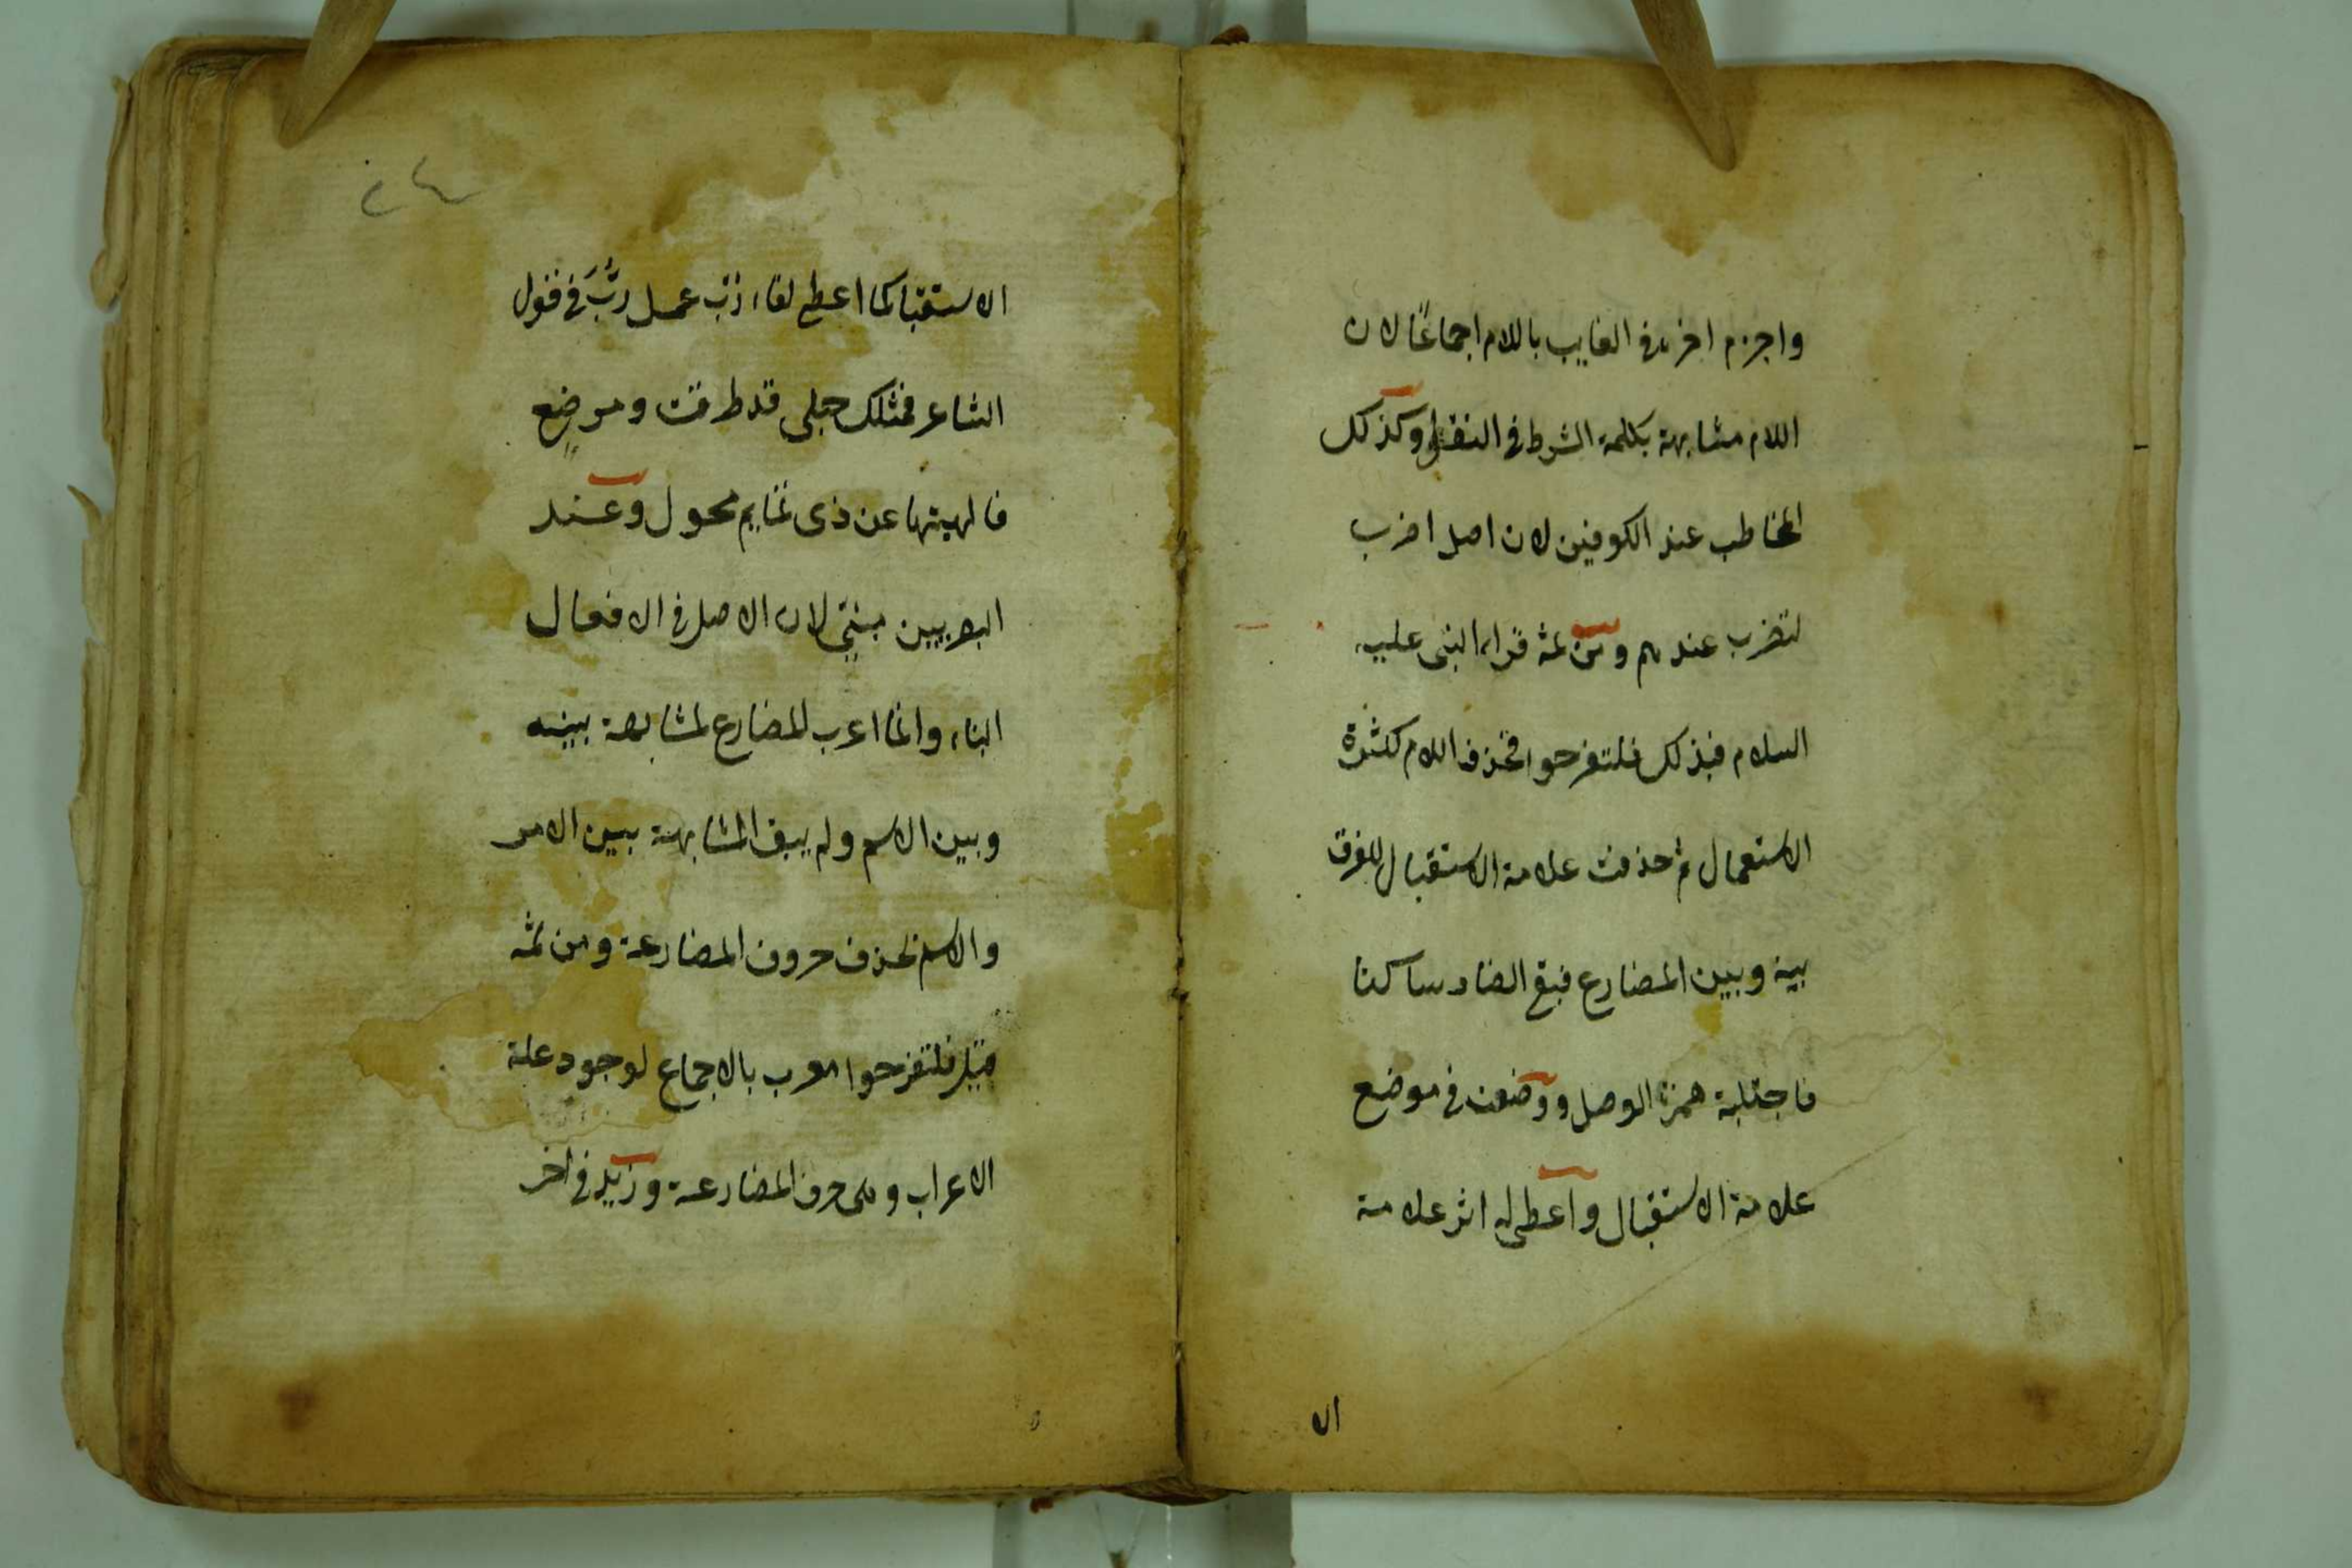 واجزم اخره في الغايب باللام اجماعًا لان
اللام مشابهة بكلمة الشرط في النقل وكذلك
المخاطب عند الكوفين لان اصل اضرب
لتضرب عندهم ومن ثمه قراء النبى عليه
السلام فبذلك فلتفرحوا فحذف اللام لكثرة
الاستعمال ثم حذفت علامة الاستقبال للفرق
بينه وبين المضارع فبقع الضاد ساكنا
فاجتلبة همزة الوصل ووضعت في موضع
علامة الاستقبال واعطى له اثر علامة
الا
٢٤
الاستقبال كما اعطى لفاء ربّ عمل ربَّ في قول
الشاعر فمثلك حبلى قد طرقت ومرضعٍ
فالهيتها عن ذى تمايم محول وعند
البصريين مبنى لان الاصل في الافعال
البناء وانما اعرب المضارع لمشابهة بينه
وبين الاسم ولم يبق المشابهة بين الامر
والاسم بحذف حروف المضارعة ومن ثمه
قيل فلتفرحوا معرب بالاجماع لوجود علة
الاعراب وهى حرف المضارعة وزيد في اخر